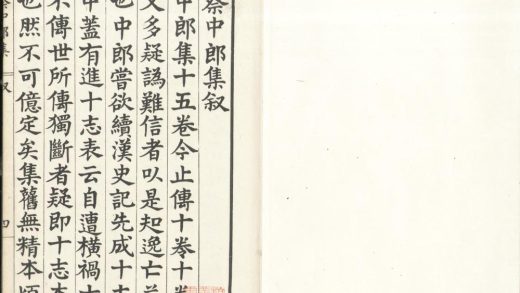 蔡中郎集叙
中郎集十五卷今止傳十卷十卷
又多疑譌難信者以是知逸亡
也中郎嘗欲續漢史記先成十
中蓋有進十志表云自遭橫禍
不傳世所傳獨斷者疑即十志
也然不可億定矣集舊無精本頃
蔡中郎集 叙 四